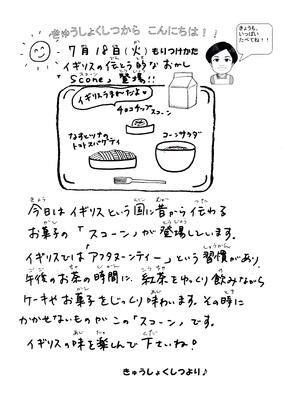 きゅうしょくしつから こんにちは！！
きょうも、
いっぱい
たべてね！！
7月18日(火)もりつけかた
イギリスの伝とう的なおかし
スコーン
「Scone」登場!!
イギリスうまれだよ♡
チョコチップ
スコーン
なすとツナの
トマトスパゲティ
コーンサラダ
きょう くに むかし つた
今日はイギリスという国に昔から伝わる
かし とうじょう
お菓子の「スコーン」が登場しています。
しゅうかん
イギリスでは「アフタヌーンティー」という習慣があり、
ごご ちゃ じかん こうちゃ の
午後のお茶の時間に、紅茶をゆっくり飲みながら
かし あじ とき
ケーキやお菓子をじっくり味わいます。その時に
かかせないものがこの「スコーン」です。
あじ たの くだ
イギリスの味を楽しんで下さいね！
きゅうしょくしつより♪